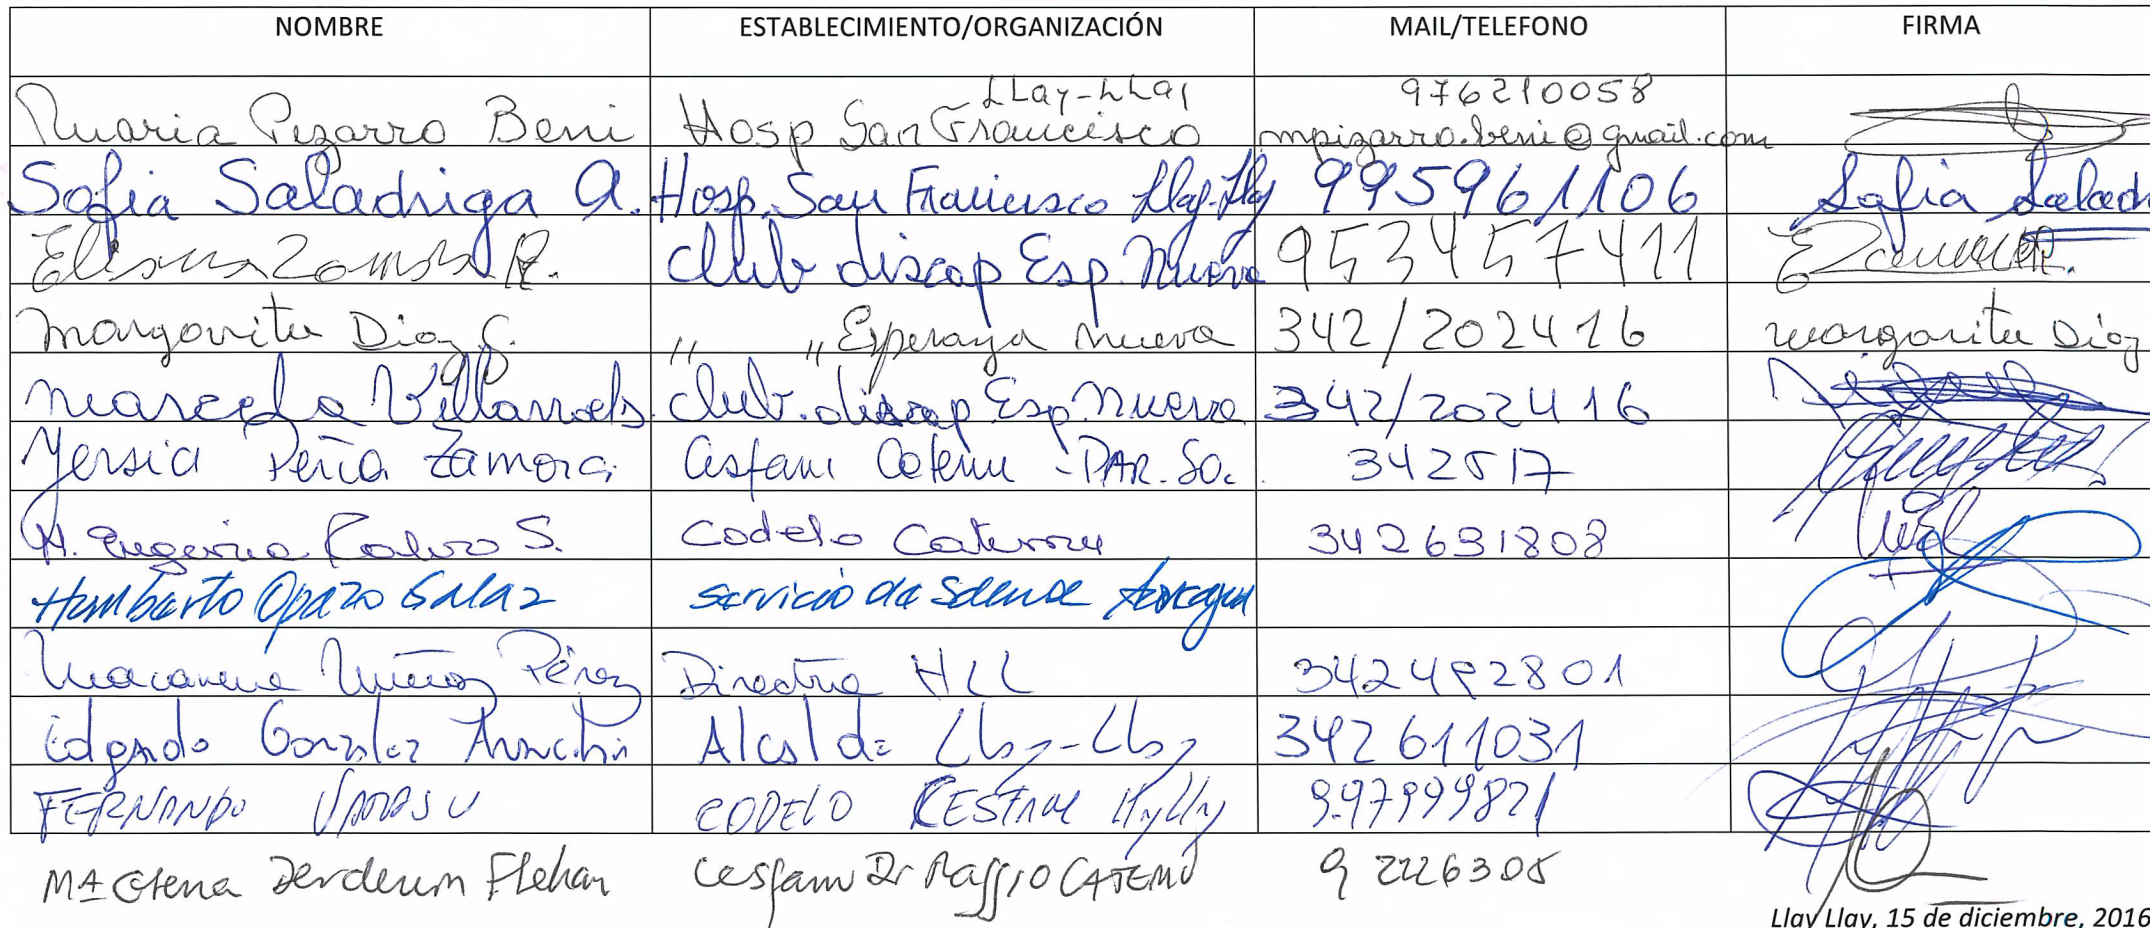 NOMBRE ESTABLECIMIENTO/ORGANIZACIÓN MAIL/TELEFONO FIRMA
LLay-LLay 976210058
Maria Pizarro Beni Hosp San Francisco mpizarro.beni@gmail.com
Sofia Saladriga A. Hosp. San Francisco Llay-Llay 995961106 Sofia Salad
R. Club discap Esp. Nueva 953457411
Margarita Diaz C. " " Esperanza nueva 342/202416 Margarita Diaz
Marcela Villarroel S. Club. discap Esp. Nueva 342/202416
Yersia Peña Zamora Cesfam Catemu - PAR. SO. 342517
M. Eugenia S. Codelo Catemu 342631808
Humberto Opazo Galaz Servicio de Aconcagua
Macarena Muñoz Pérez Directora HLL
Edgardo Gonzalez Alcalde Llay-Llay 342611031
FERNANDO CODELO CESFAM LlayLlay 9.97999821
Mª Elena Cesfam Dr Raggio CATEMU 9 2226305
Llay Llay, 15 de diciembre, 2016